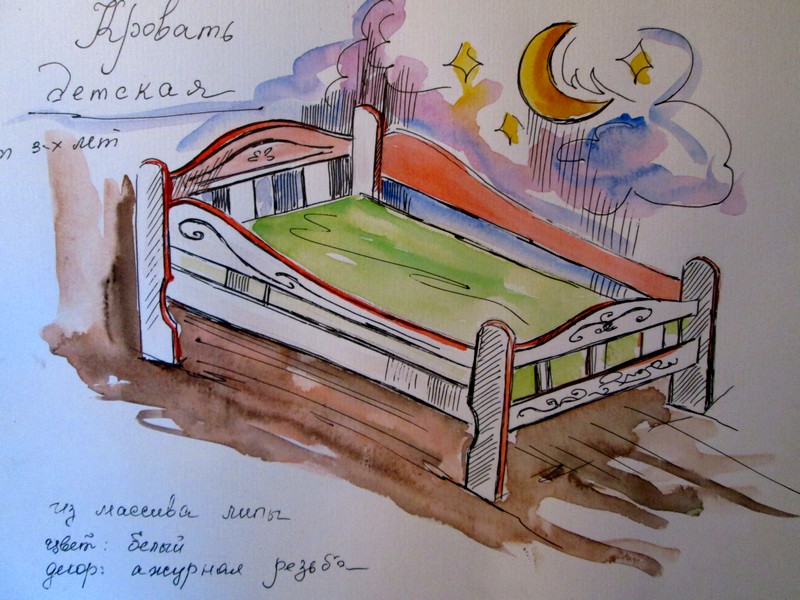 Кровать
детская
от 3-х лет
из массива липы
цвет: белый
декор: ажурная резьба